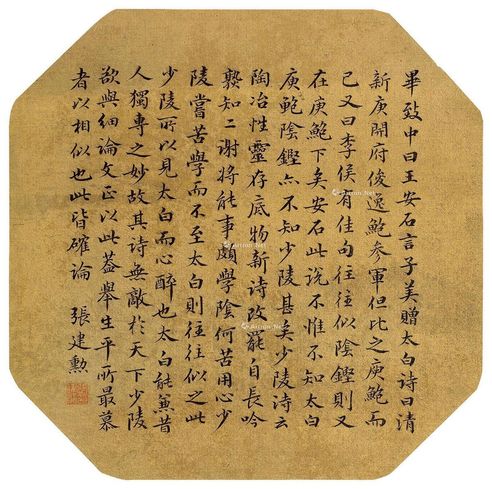 畢致中曰王安石言子美贈太白詩曰清
新庚開府俊逸鮑參軍但比之庚鮑而
已又曰李侯有佳句往往似陰鏗則又
在庚鮑下矣安石此說不惟不知太白
庚鮑陰鏗亦不知少陵甚矣少陵詩云
陶冶性靈存底物新詩改罷自長吟
熟知二謝將能事頗學陰何苦用心少
陵嘗苦學而不至太白則往往似之此
少陵所以見太白而心醉也太白能兼昔
人獨專之妙故其詩無敵於天下少陵
欲與細論文正以此葢舉生平所最慕
者以相似也此皆確論 張建勳